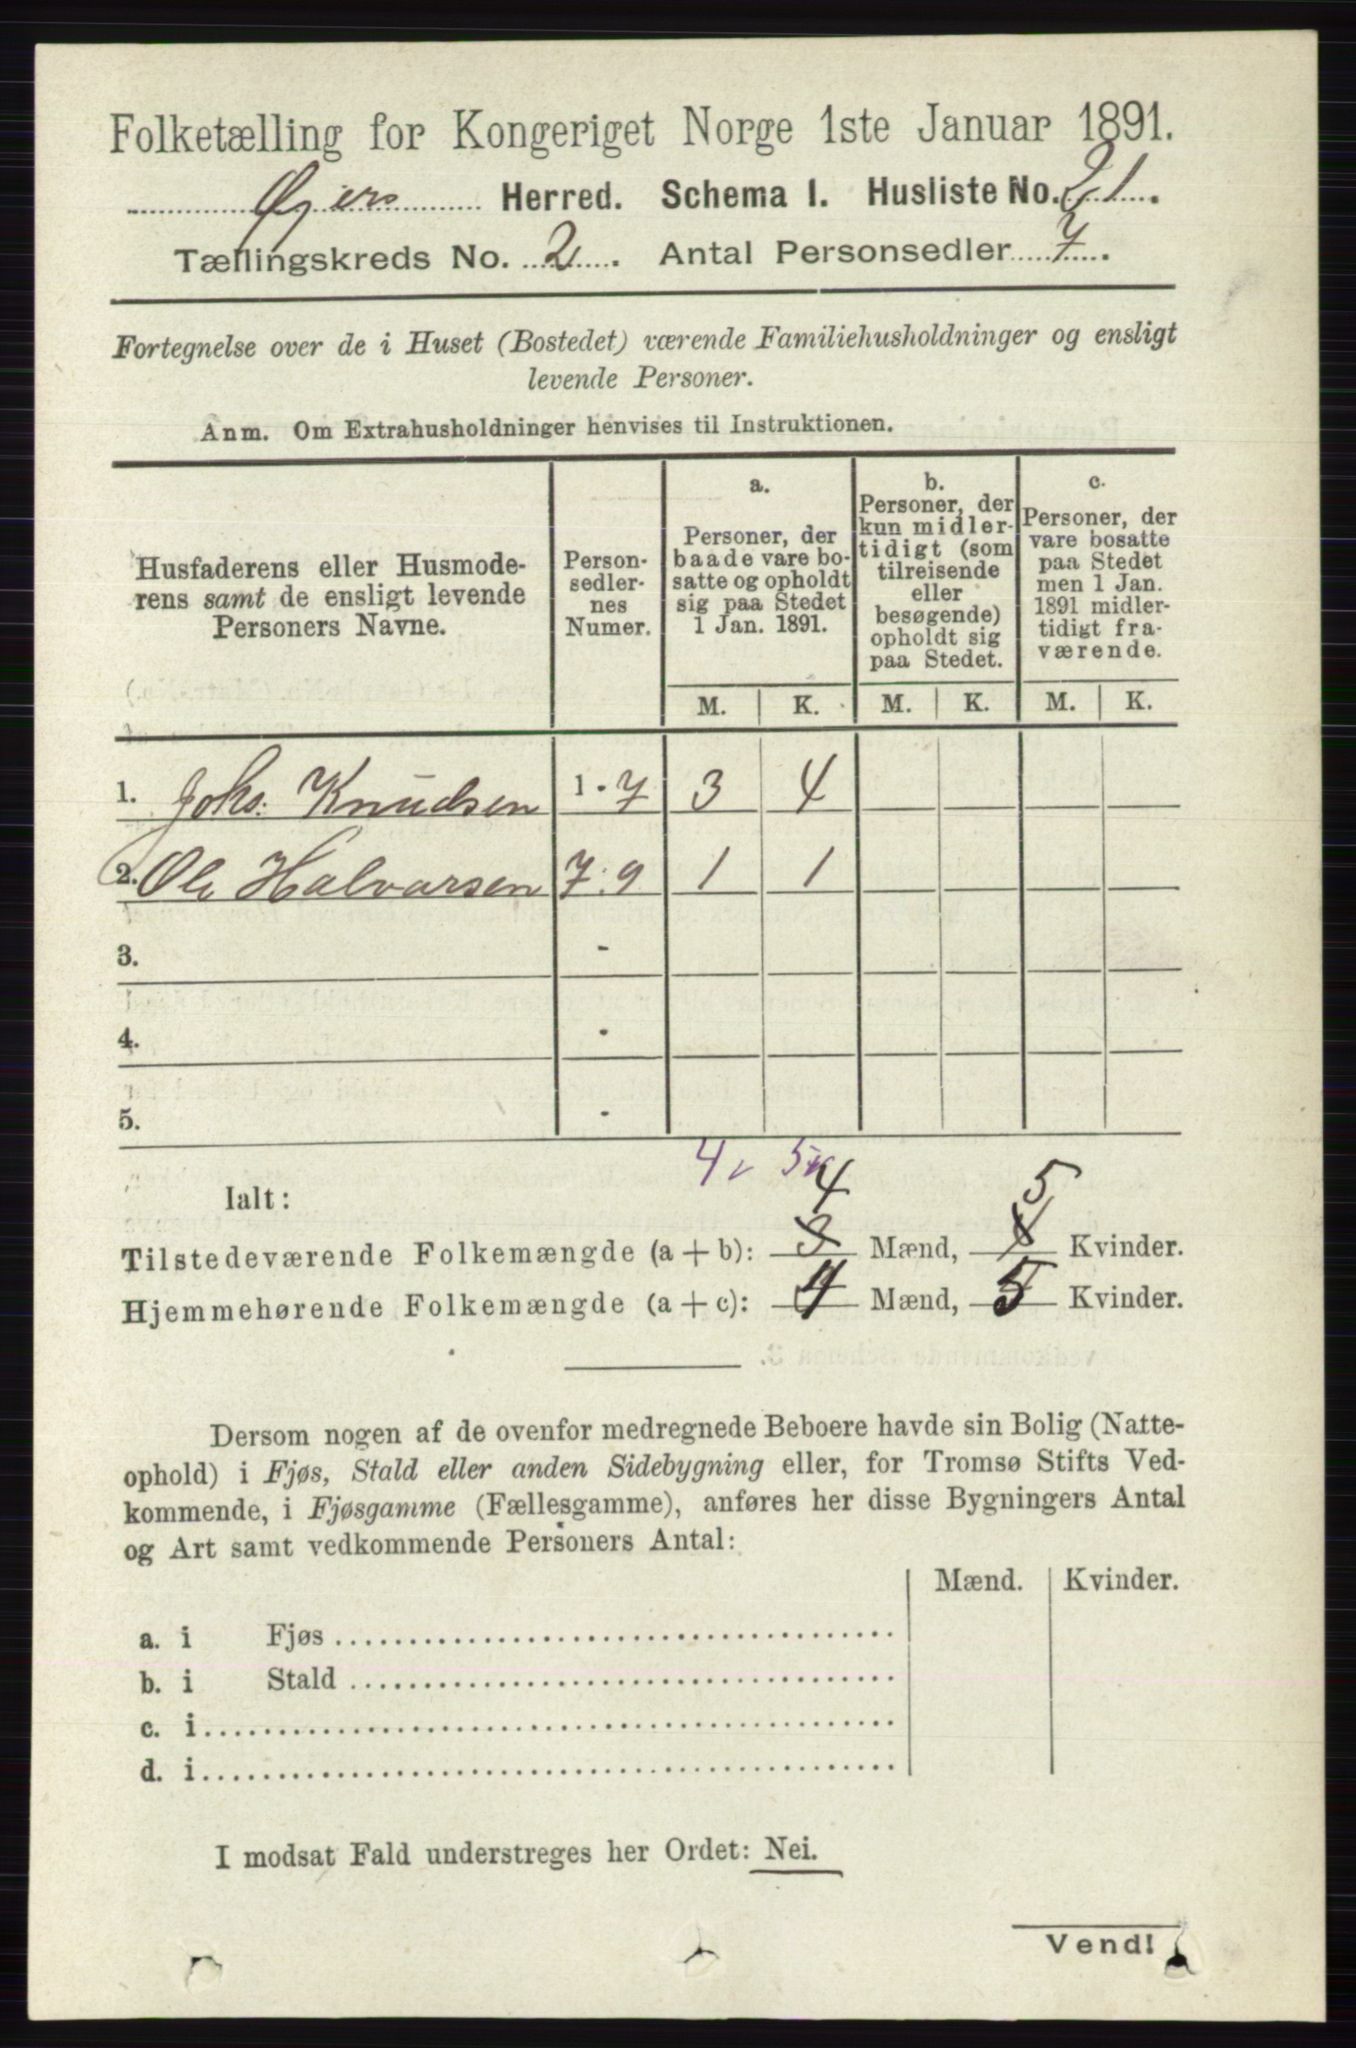 Folketælling for Kongeriget Norge 1ste Januar 1891.
Øiers Herred. Schema I. Husliste No. 21.
Tællingskreds No. 2. Antal Personsedler 7.
Fortegnelse over de i Huset (Bostedet) værende Familiehusholdninger og ensligt
levende Personer.
Anm. Om Extrahusholdninger henvises til Instruktionen.
Husfaderens eller Husmode-
rens samt de ensligt levende
Personers Navne.
Person-
sedler-
nes
Numer.
a.
Personer, der
baade vare bo-
satte og opholdt
sig paa Stedet
1 Jan. 1891.
b.
Personer, der
kun midler-
tidigt (som
tilreisende
eller
besøgende)
opholdt sig
paa Stedet.
c.
Personer, der
vare bosatte
paa Stedet
men 1 Jan.
1891 midler-
tidigt fra-
værende.
M. K. M. K. M. K.
1. Johs. Knudsen 1 - 7 3 4
2. Ole Halvorsen 7 - 9 1 1
3. -
4. -
5. -
4 5
4 5
Ialt:
Tilstedeværende Folkemængde (a + b): 3 Mænd, Kvinder.
Hjemmehørende Folkemængde (a + c): 4 Mænd, 5 Kvinder.
Dersom nogen af de ovenfor medregnede Beboere havde sin Bolig (Natte-
ophold) i Fjøs, Stald eller anden Sidebygning eller, for Tromsø Stifts Ved-
kommende, i Fjøsgamme (Fællesgamme), anføres her disse Bygningers Antal
og Art samt vedkommende Personers Antal:
Mænd. Kvinder.
a. i Fjøs
b. i Stald
c. i
d. i
I modsat Fald understreges her Ordet: Nei.
Vend!